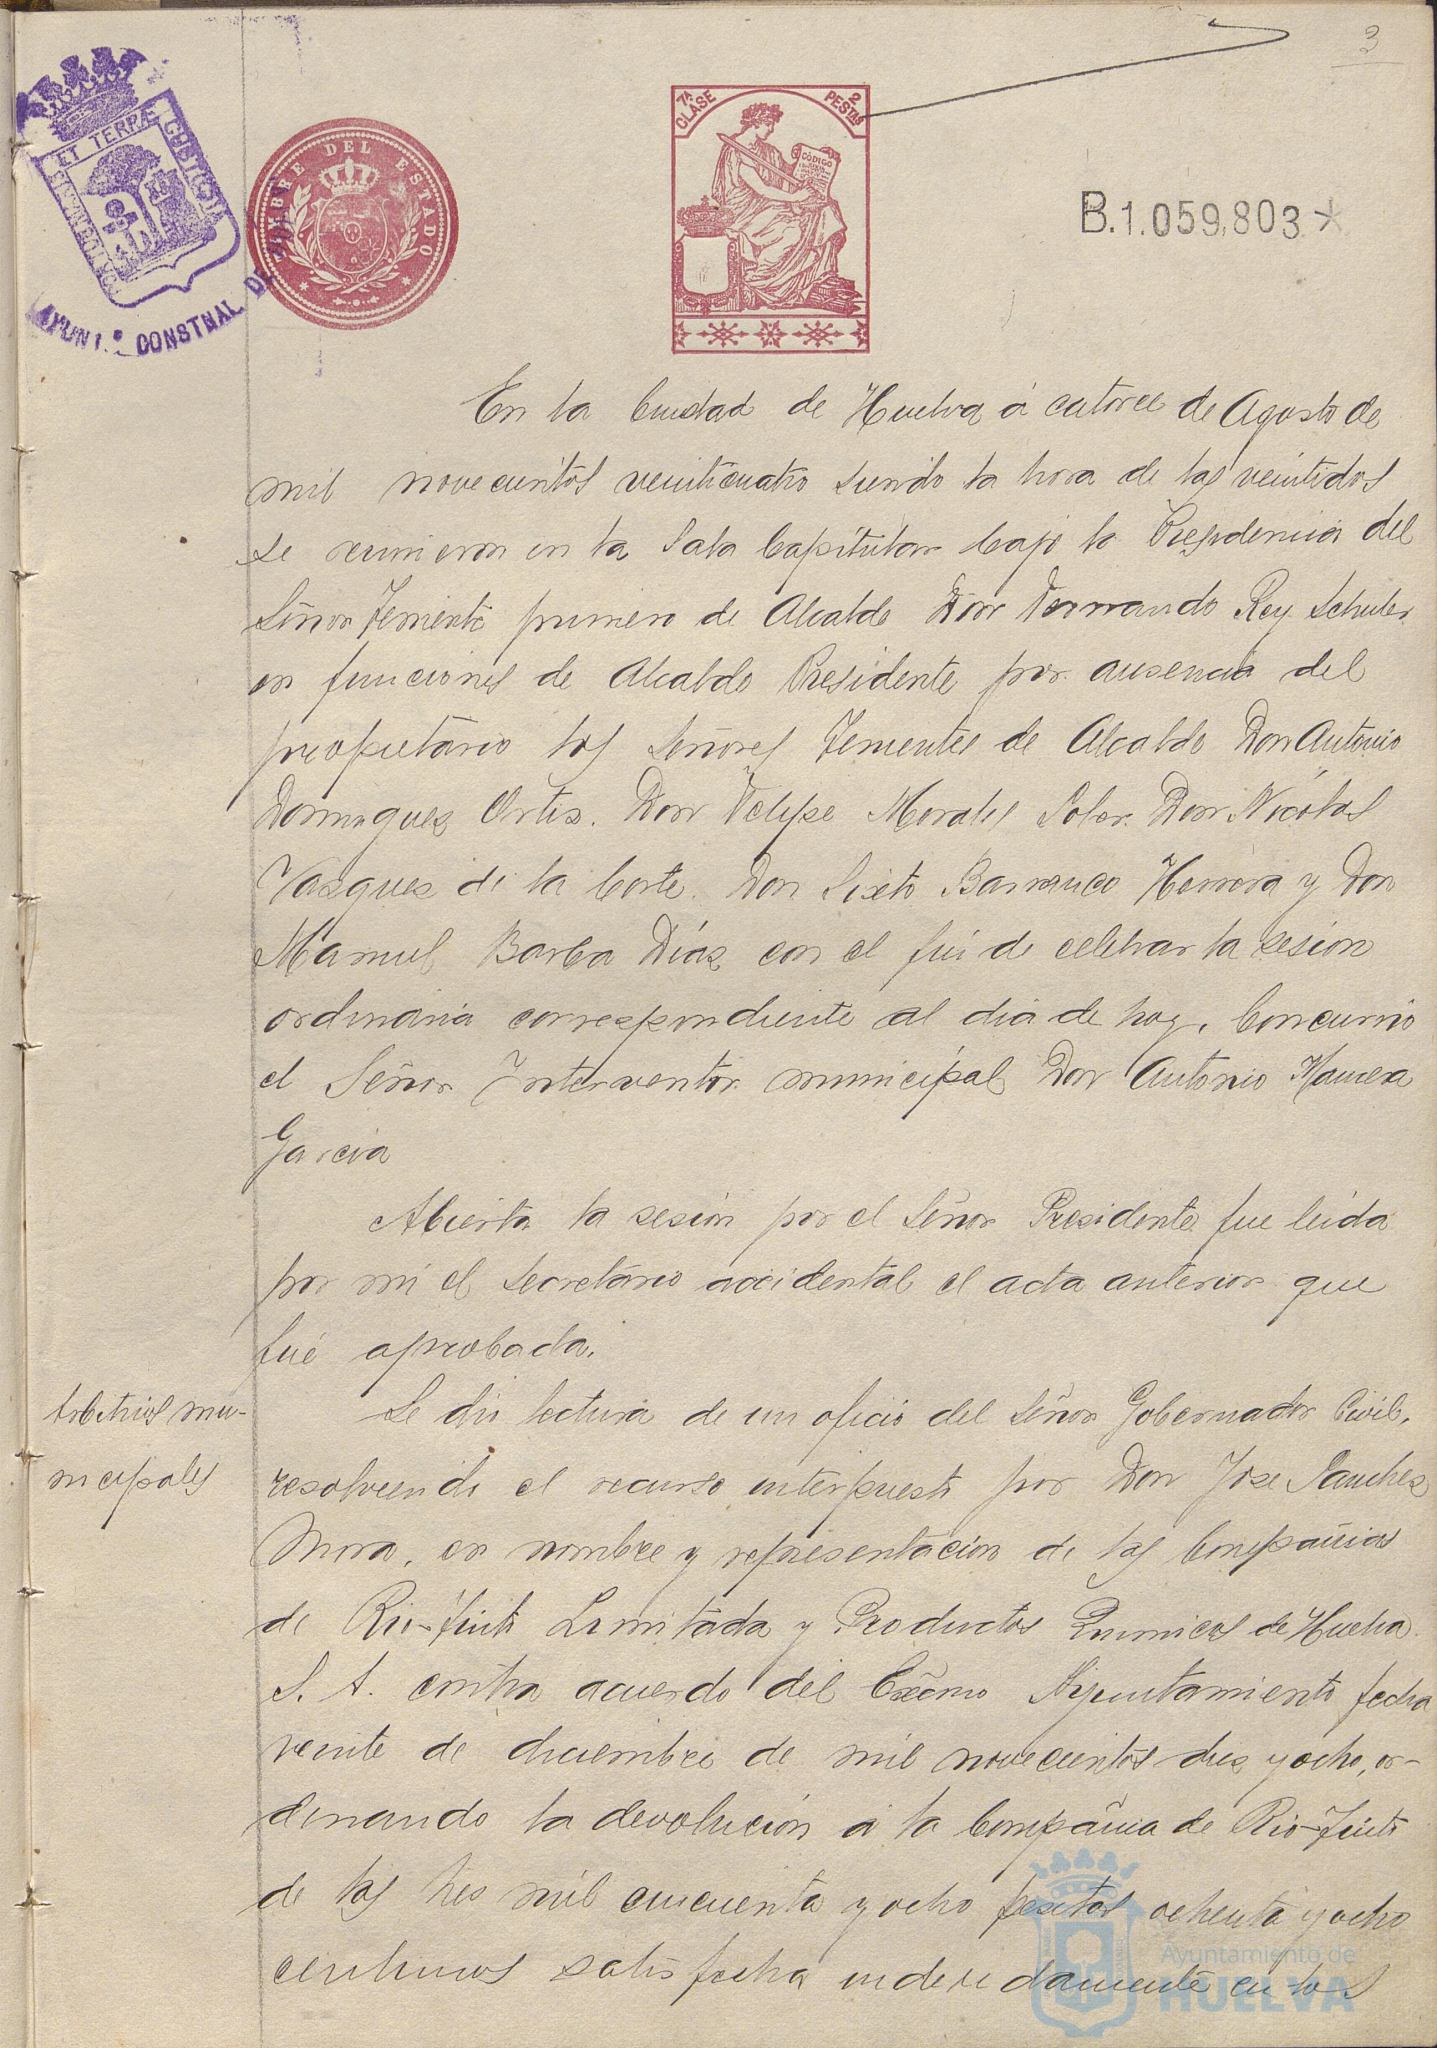 3
7ª CLASE
2 PESTAS
CÓDIGO
PORTUS MARIS ET TERRÆ CUSTODIA
AYUNTº CONSTNAL DE
TIMBRE DEL ESTADO
B.1.059,803*
En la Ciudad de Huelva á catorce de Agosto de
mil novecientos veinticuatro siendo la hora de las veintidos
se reunieron en la Sala Capitular bajo la Presidencia del
Señor Teniente primero de Alcalde Don Fernando Rey Schuler
en funciones de Alcalde Presidente por ausencia del
propietario los Señores Tenientes de Alcalde Don Antonio
Dominguez Ortiz. Don Felipe Morales Soler. Don Nicolas
Vazquez de la Corte. Don Sixto Barranco Herrera y Don
Manuel Barba Díaz con el fin de celebrar la sesion
ordinaria correspondiente al dia de hoy. Concurrió
el Señor Interventor municipal Don Antonio
Garcia
Abierta la sesión por el Señor Presidente fue leida
por mi el Secretario accidental el acta anterior que
fué aprobada.
Arbitrios mu-
nicipales
Se dio lectura de un oficio del Señor Gobernador Civil,
resolviendo el recurso interpuesto por Don Jose Sanchez
Mora, en nombre y representacion de las Compañias
de Rio-Tinto Limitada y Productos Quimicos de Huelva
S. A. contra acuerdo del Excmo Ayuntamiento fecha
veinte de diciembre de mil novecientos diez y ocho, or-
denando la devolución a la Compañia de Rio-Tinto
de las tres mil cincuenta y ocho pesetas ochenta y ocho
centimos satisfecha indevidamente en los
Ayuntamiento de
HUELVA